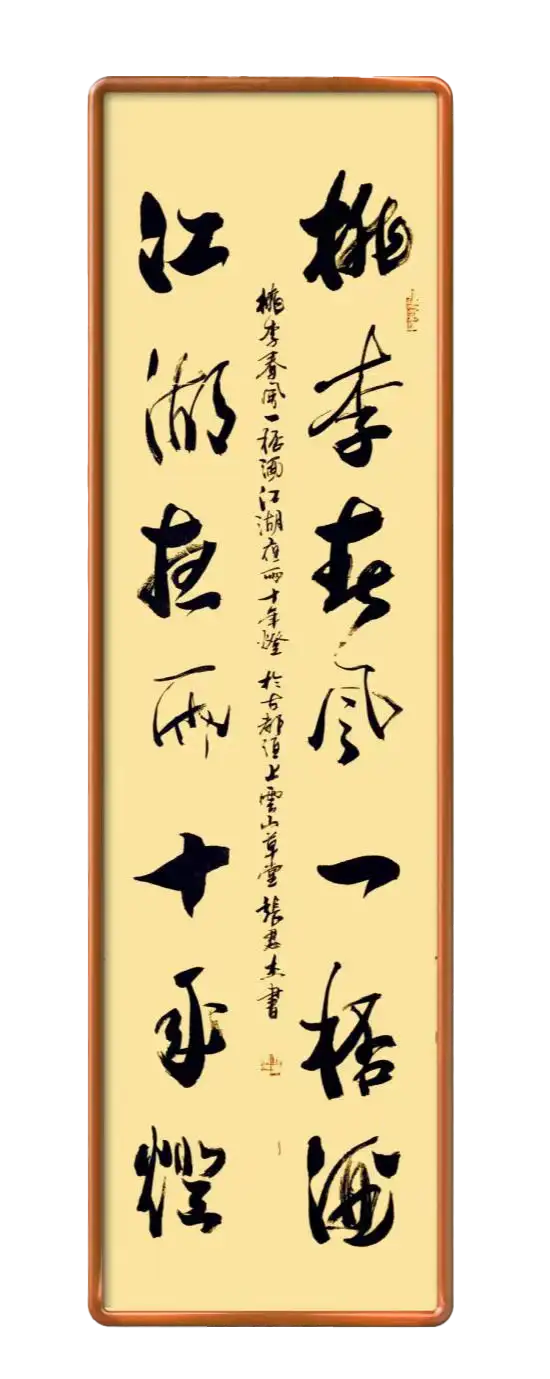 桃李春風一桮酒
江湖夜雨十年燈
桃李春風一桮酒江湖夜雨十年燈 於古都項上雲山草堂 張君杰書